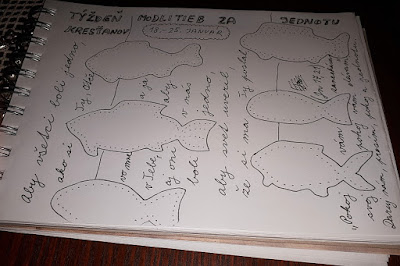 TÝŽDEŇ MODLITIEB ZA JEDNOTU
KRESŤANOV 18.-25. JANUÁR
Aby všetci boli jedno
ako si Ty, Otče,
vo mne a ja
v Tebe, aby
aj oni v nás
boli jedno,
aby svet uveril
že si ma Ty poslal
Jn 17,21
„Pokoj vám zanechávam
svoj pokoj vám dávam
Daruj nám, prosím, pokoj a jednotu.